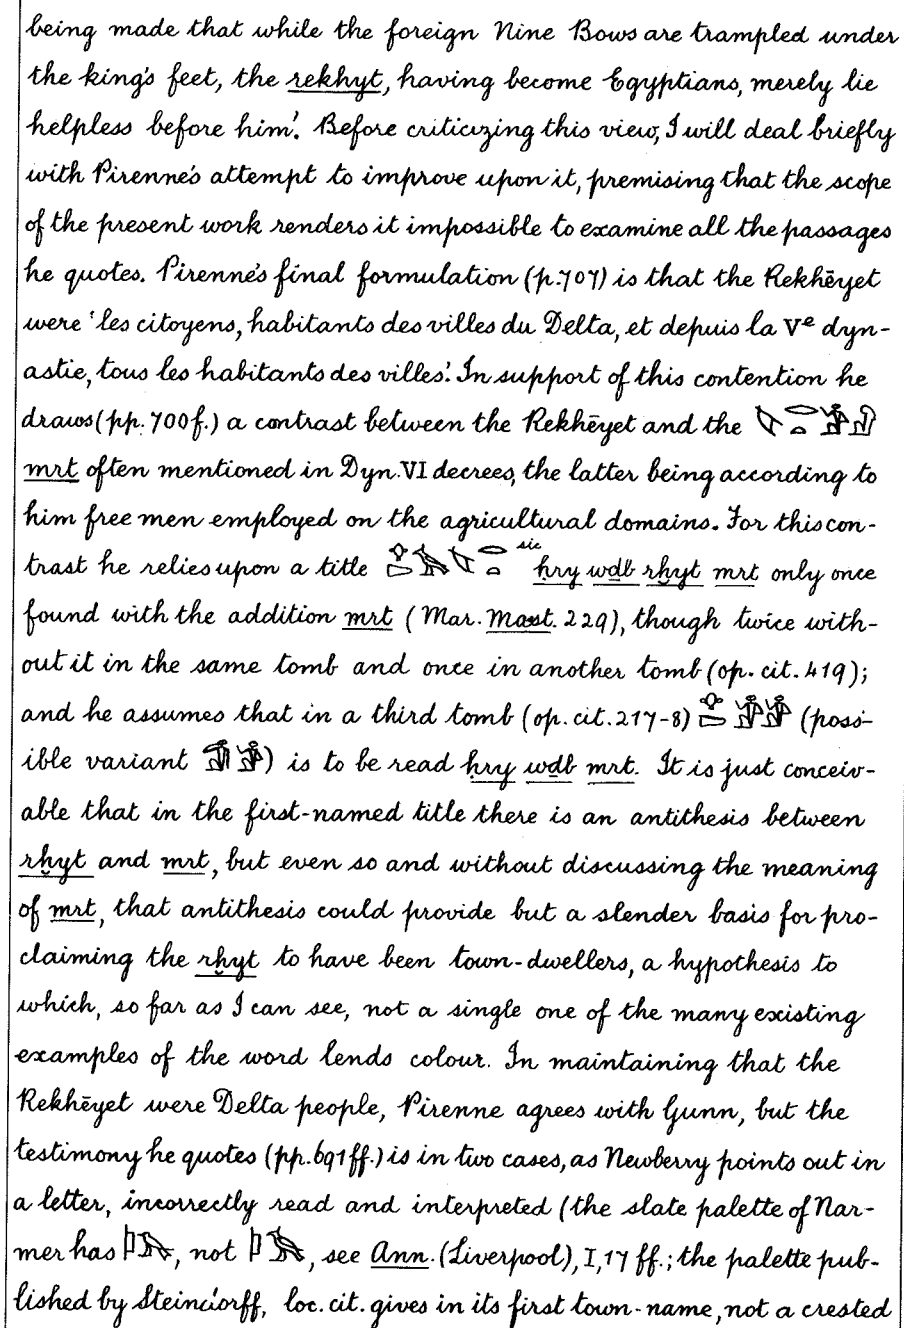 being made that while the foreign Nine Bows are trampled under
the king's feet, the rekhyt, having become Egyptians, merely lie
helpless before him'. Before criticizing this view, I will deal briefly
with Pirenne's attempt to improve upon it, premising that the scope
of the present work renders it impossible to examine all the passages
he quotes. Pirenne's final formulation (p. 707) is that the Rekhēyet
were 'les citoyens, habitants des villes du Delta, et depuis la Vᵉ dyn-
astie, tous les habitants des villes'. In support of this contention he
draws (pp. 700 f.) a contrast between the Rekhēyet and the
mrt often mentioned in Dyn. VI decrees, the latter being according to
him free men employed on the agricultural domains. For this con-
trast he relies upon a title sic ḥry wḏb rḫyt mrt only once
found with the addition mrt (Mar. Mast. 229), though twice with-
out it in the same tomb and once in another tomb (op. cit. 419);
and he assumes that in a third tomb (op. cit. 217-8) (poss-
ible variant ) is to be read ḥry wḏb mrt. It is just conceiv-
able that in the first-named title there is an antithesis between
rḫyt and mrt, but even so and without discussing the meaning
of mrt, that antithesis could provide but a slender basis for pro-
claiming the rḫyt to have been town-dwellers, a hypothesis to
which, so far as I can see, not a single one of the many existing
examples of the word lends colour. In maintaining that the
Rekhēyet were Delta people, Pirenne agrees with Gunn, but the
testimony he quotes (pp. 691 ff.) is in two cases, as Newberry points out in
a letter, incorrectly read and interpreted (the slate palette of Nar-
mer has , not , see Ann. (Liverpool), I, 17 ff.; the palette pub-
lished by Steindorff, loc. cit. gives in its first town-name, not a crested